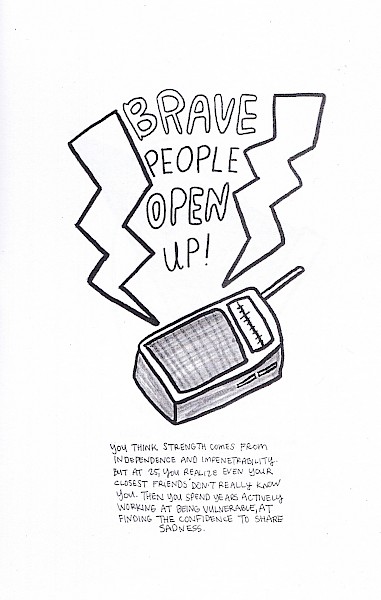 BRAVE
PEOPLE
OPEN
UP!
YOU THINK STRENGTH COMES FROM
INDEPENDENCE AND IMPENETRABILITY.
BUT AT 25, YOU REALIZE EVEN YOUR
CLOSEST FRIENDS DON'T REALLY KNOW
YOU. THEN YOU SPEND YEARS ACTIVELY
WORKING AT BEING VULNERABLE, AT
FINDING THE CONFIDENCE TO SHARE
SADNESS.